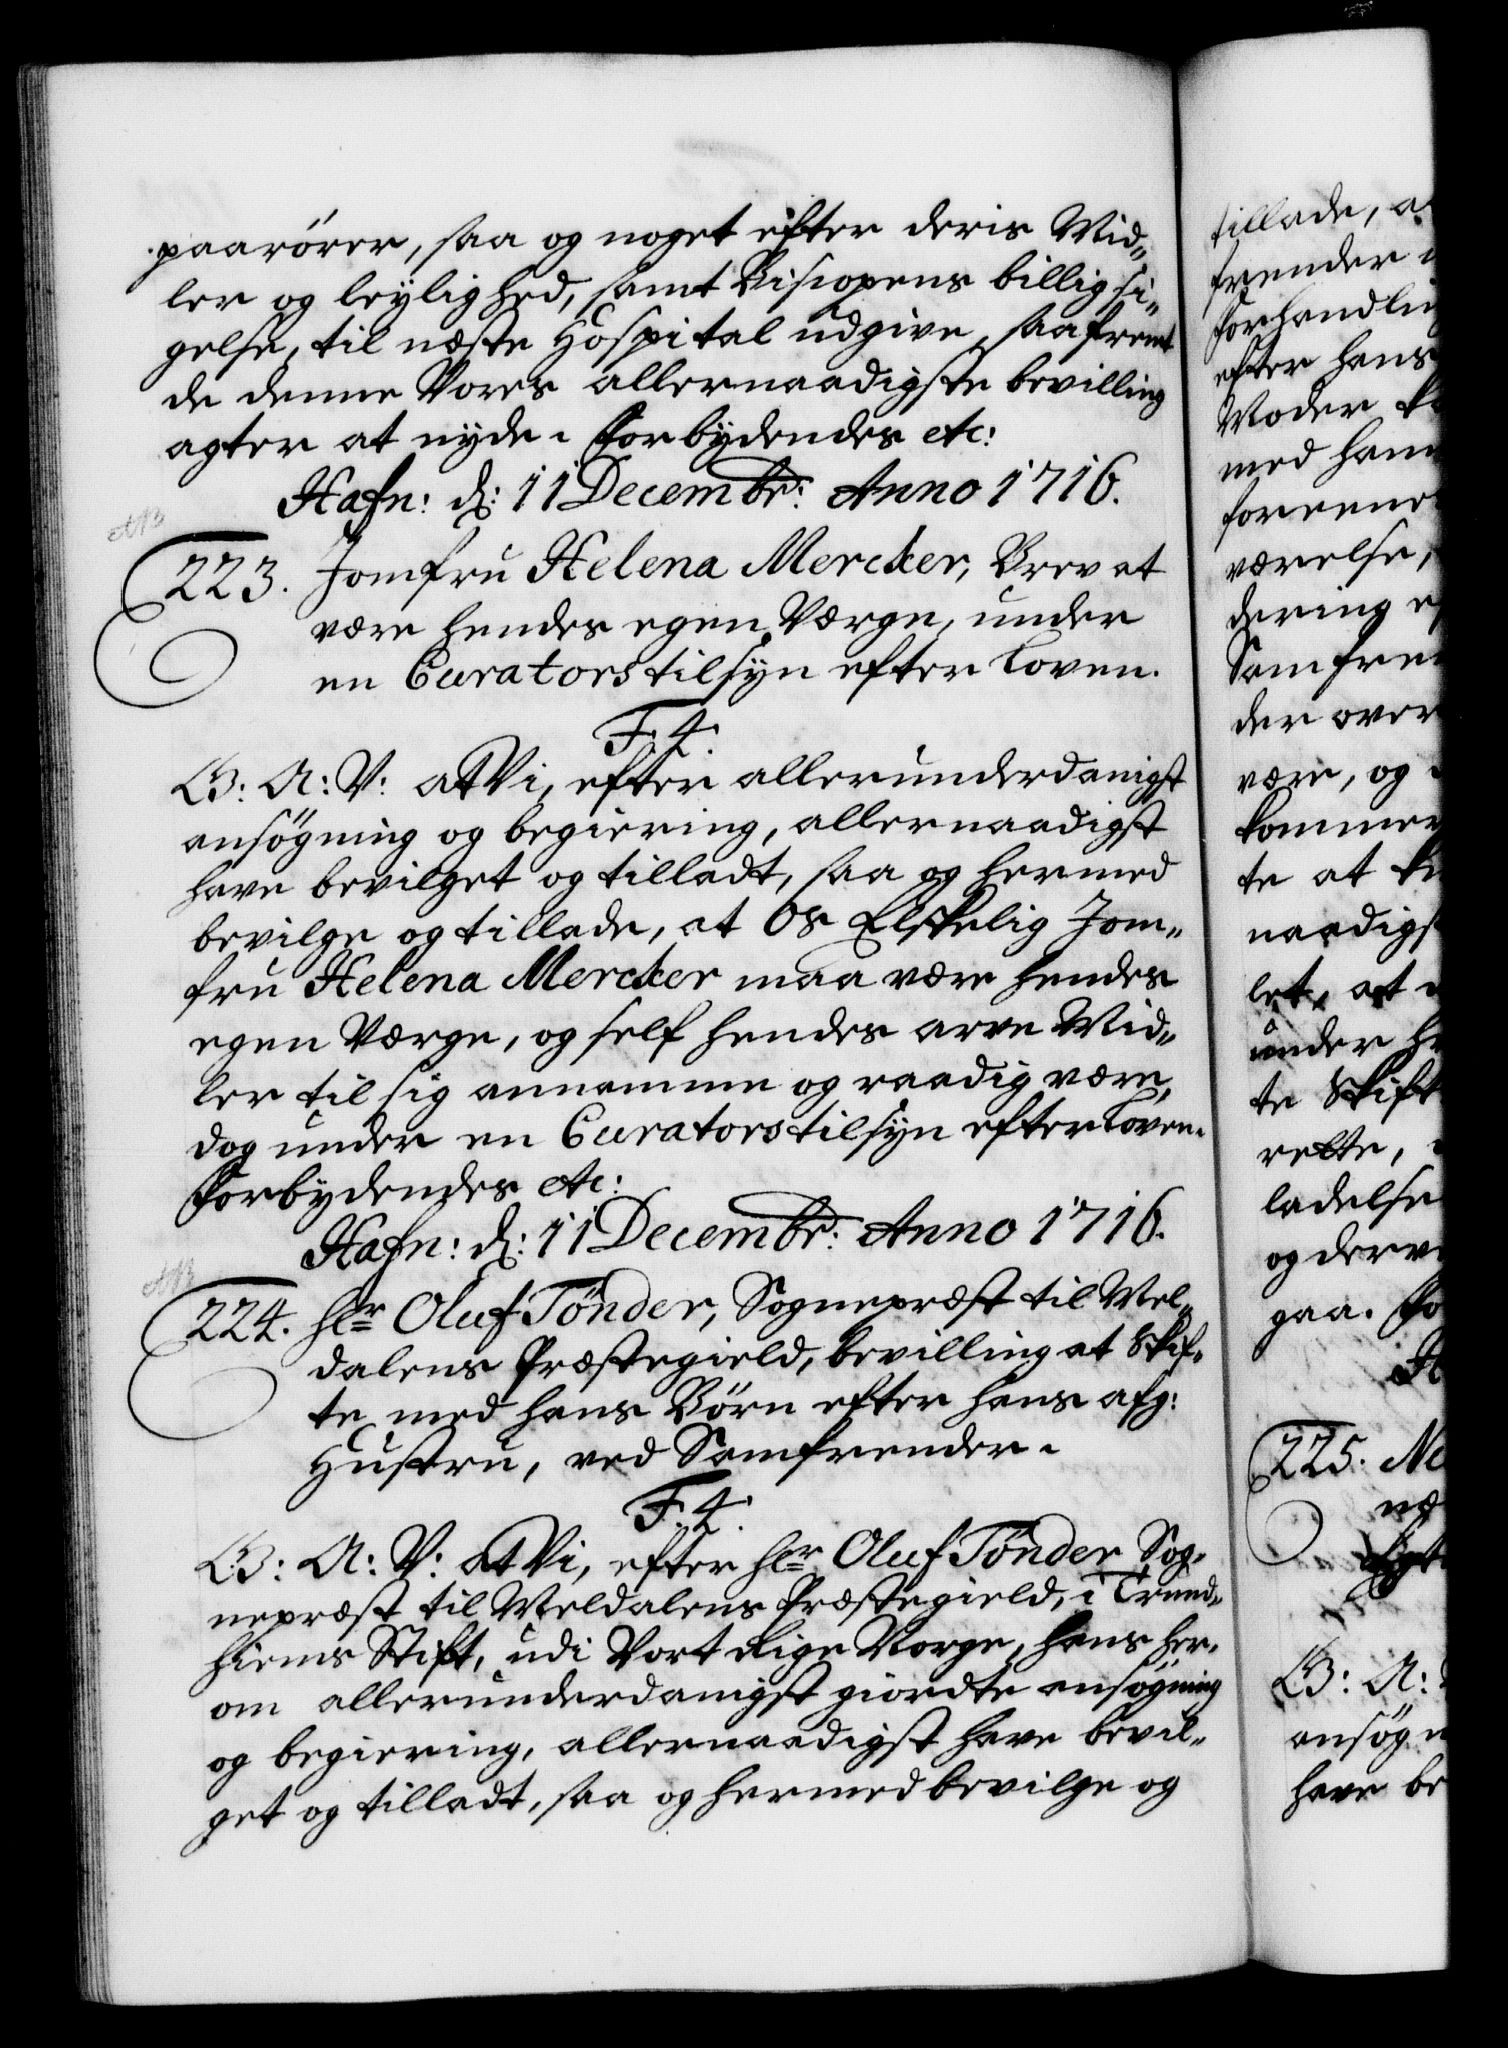 paarörer, saa og noget efter deris Mid„
ler og leylighed, samt Bispens billig si„
gelse, til næste Hospital udgive, saafremt
de denne Vores allernaadigste bevilling
agter at nyde. Forbydendes etc:
Hafn: d: 11 Decembr: Anno 1716.
223. Jomfru Helena Mercker, Brev at
være hendes egen Værge, under
en Curators tilsyn efter Loven.
F. 4.
G: A: V: at Vi, efter allerunderdanigst
ansögning og begiering, allernaadigst
have bevilget og tilladt, saa og hermed
bevilge og tillade, at Os Elskelig Jom„
fru Helena Mercker maa være hendes
egen Værge, og self hendes arve Mid„
ler til sig annamme og raadig være,
dog under en Curators tilsyn efter Loven.
Forbydendes etc:
Hafn: d: 11 Decembr: Anno 1716.
224. Hr Oluf Tönder, Sognepræst til Mel„
dalens Præstegield, bevilling at Skif„
te med hans Börn efter hans afg:
Hustru, ved Samfrender.
F. 4.
G: A: V: at Vi, efter Hr Oluf Tönder Sog„
nepræst til Meldalens Præstegield, i Trund„
hiems Stift, udi Vort Rige Norge, hans her„
om allerunderdanigst giordte ansögning
og begiering, allernaadigst have bevil„
get og tilladt, saa og hermed bevilge og
tillade, a
frender
forhandling
efter hans
Moder
med ham
foreene
værelse,
dering ef
Samfren
der over
være, og
kommer
te at
naadigst
let, at
under he
te Skift
rette,
ladelse
og derve
gaa. Fo
H
225. Ne
næ
Egt
G: A:
ansögn
have be